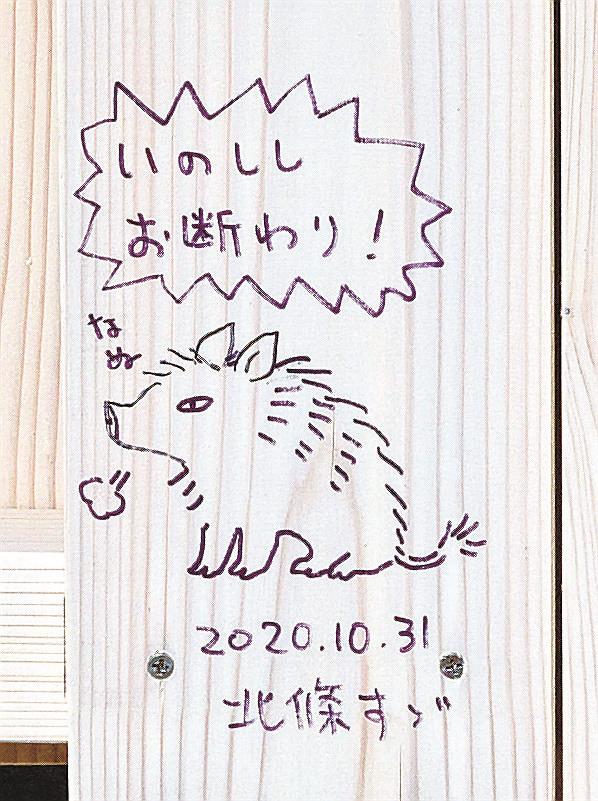 いのしし
お断わり！
なぬ
2020.10.31
北條すゞ